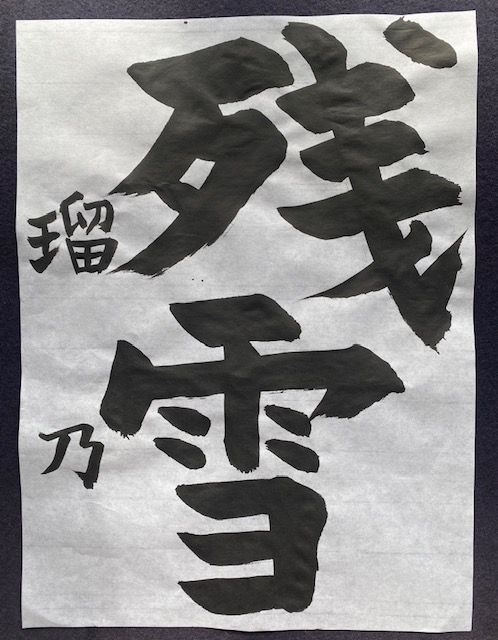 残雪
瑠乃